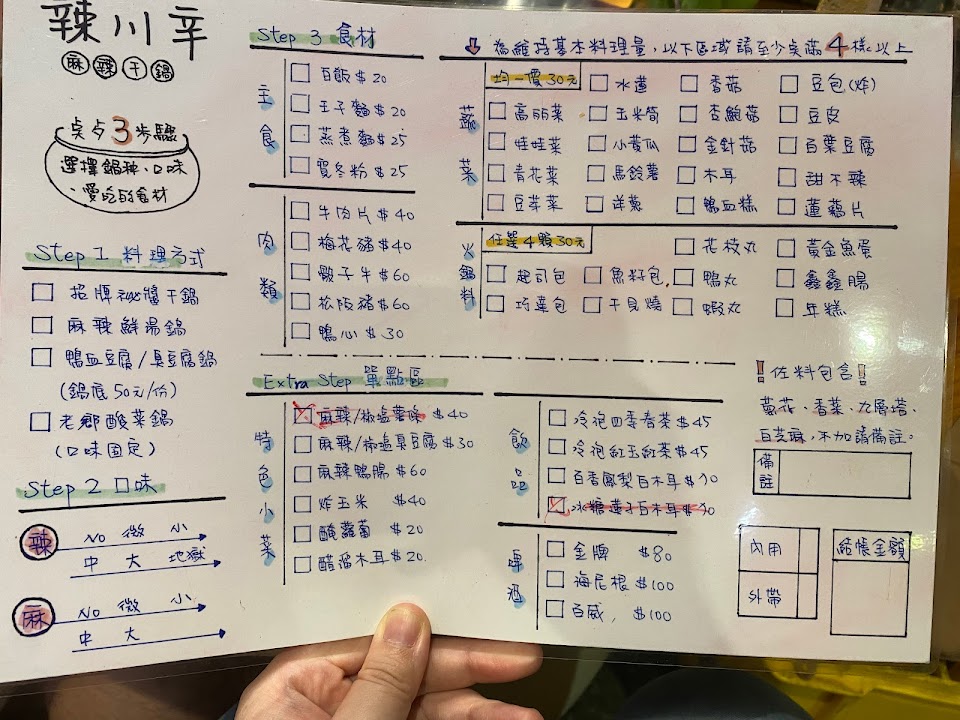 辣川辛
麻辣干鍋
桌歺3步驟
選擇鍋種、口味
、愛吃的食材
Step 1 料理方式
招牌祕醬干鍋
麻辣鮮湯鍋
鴨血豆腐/臭豆腐鍋
(鍋底50元/份)
老鄉酸菜鍋
(口味固定)
Step 2 口味
辣
No 微 小
中 大 地獄
麻
No 微 小
中 大
Step 3 食材
主食
白飯$20
王子麵$20
蒸煮麵$25
寬冬粉$25
肉類
牛肉片$40
梅花豬$40
骰子牛$60
松阪豬$60
鴨心$30
為維持基本料理量,以下區域請至少桌滿4樣以上
蔬菜
均一價30元
水蓮 香菇 豆包(炸)
高麗菜 玉米筍 杏鮑菇 豆皮
娃娃菜 小黃瓜 金針菇 百頁豆腐
青花菜 馬鈴薯 木耳 甜不辣
豆芽菜 洋蔥 鴨血糕 蓮藕片
火鍋料
任選4顆30元
花枝丸 黃金魚蛋
起司包 魚籽包 鴨丸 鑫鑫腸
巧達包 干貝燒 蝦丸 年糕
Extra Step 單點區
特色小菜
麻辣/椒塩薯條 $40
麻辣/椒塩臭豆腐$30
麻辣鴨腸$60
炸玉米 $40
醃蘿蔔 $20
醋溜木耳$20
飲品
冷泡四季春茶$45
冷泡紅玉紅茶$45
百香鳳梨白木耳$70
冰糖蓮子白木耳$70
啤酒
金牌 $80
海尼根$100
百威 $100
!佐料包含!
黃花、香菜、九層塔、
白芝麻,不加請備註。
備註
內用
外帶
結帳金額